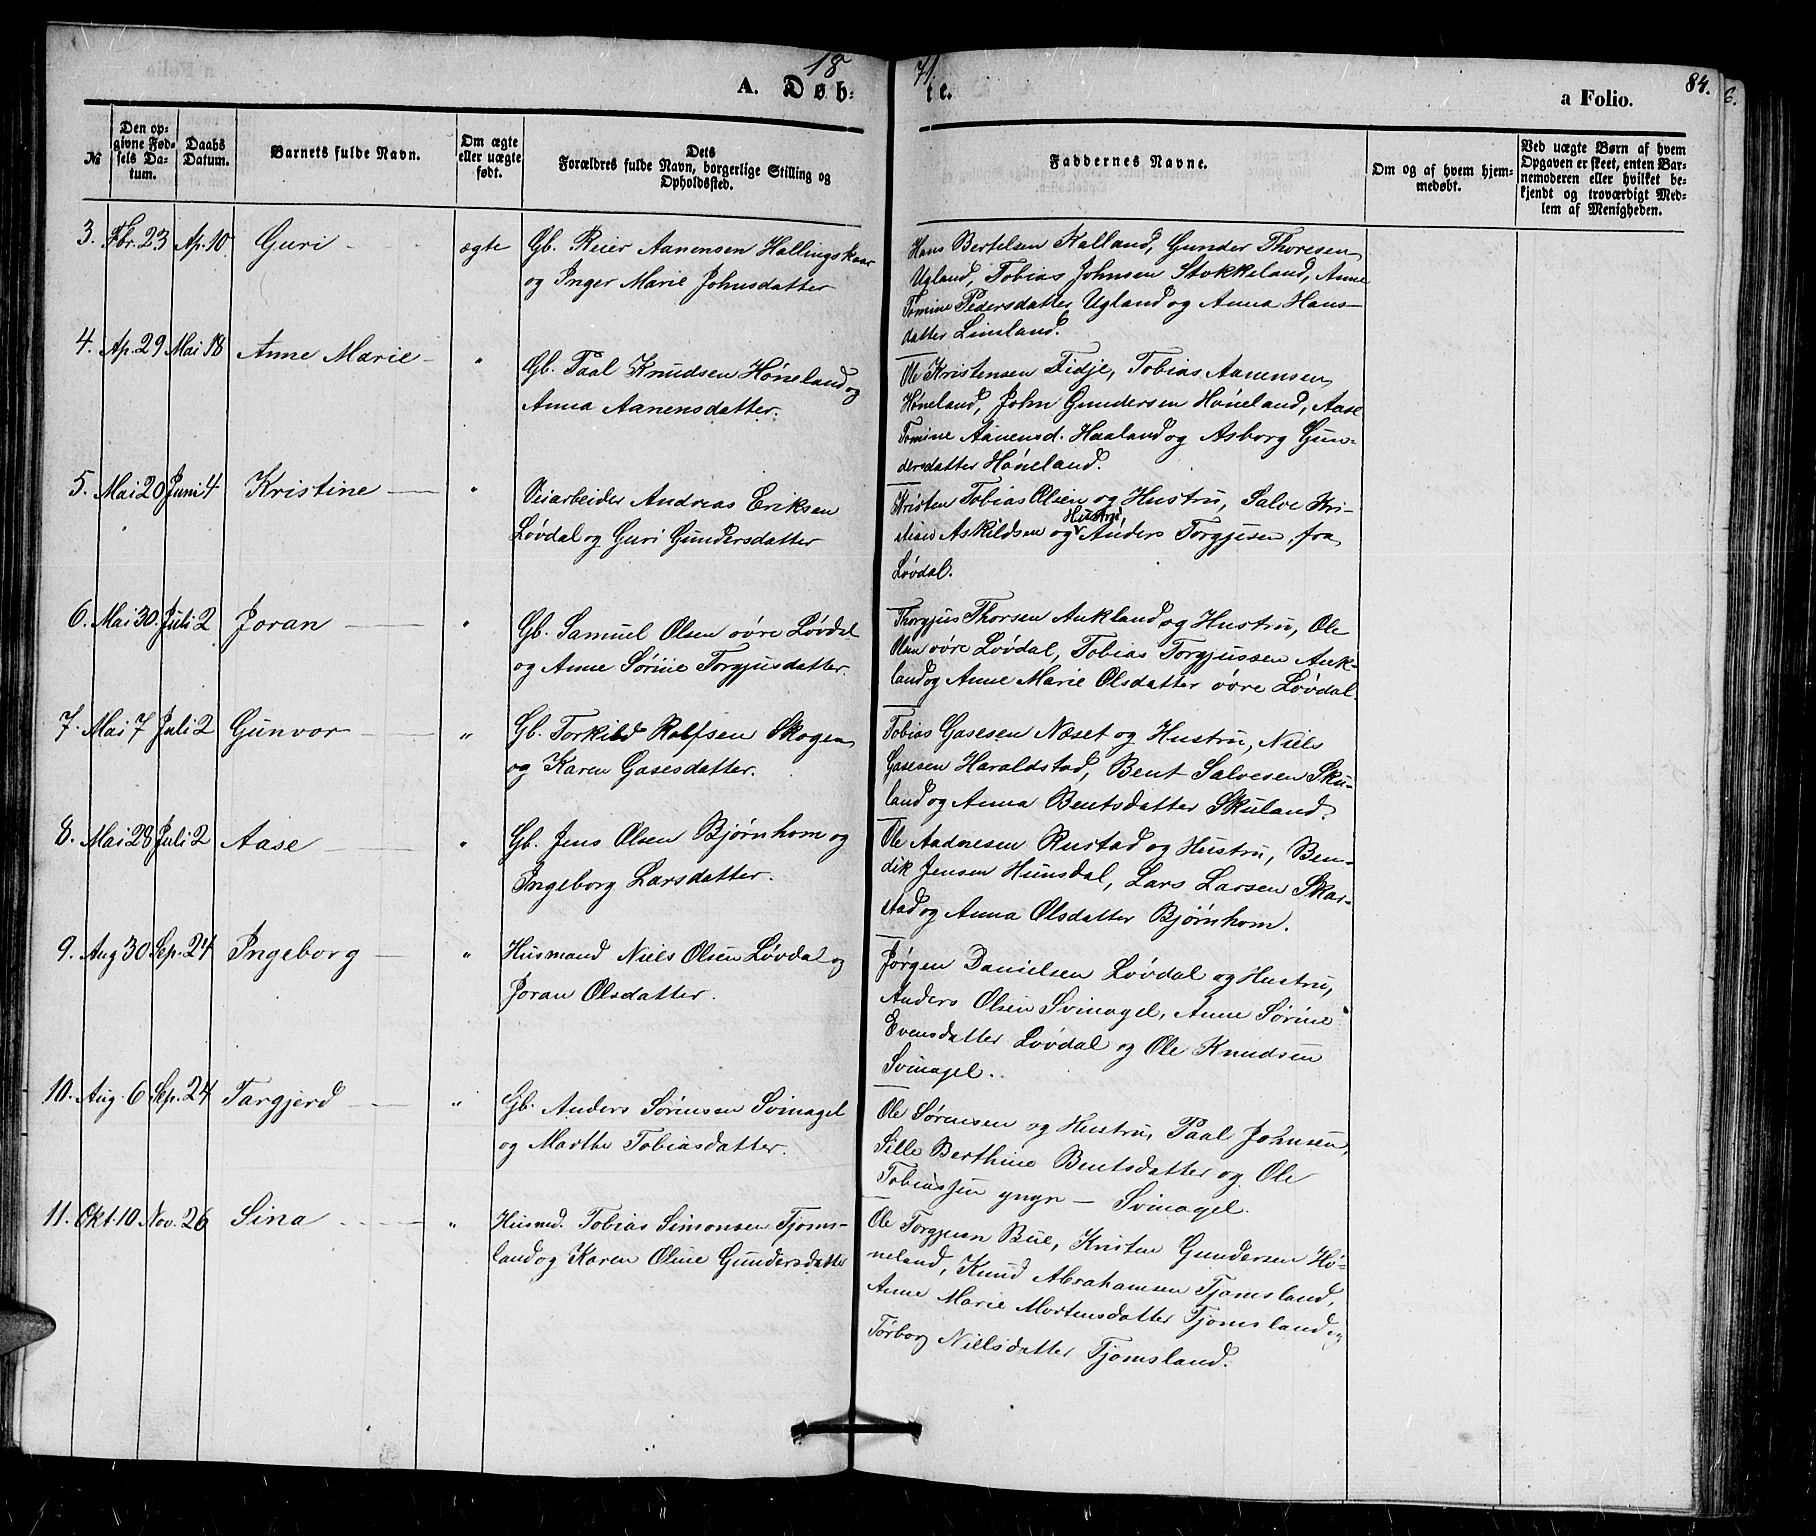 1871.
A. Døbte.
a Folio. 84.
6.
№
Den opgivne Fødsels Datum.
Daabs Datum.
Barnets fulde Navn.
Om ægte eller uægte født.
Dets Forældres fulde Navn, borgerlige Stilling og Opholdssted.
Faddernes Navne.
Om og af hvem hjemmedøbt.
Ved uægte Børn af hvem Opgaven er skeet, enten Barnemoderen eller hvilket bekjendt og troværdigt Medlem af Menigheden.
3. Fbr. 23 Ap. 10. Guri ægte
Gb. Reier Aanensen Hallingskaar
og Inger Marie Johnsdatter
Hans Bertelsen Kalland, Gunder Thoresen
Ugland, Tobias Johnsen Stokkeland, Anne
Tomine Pedersdatter Ugland og Anna Hans-
datter Limland.
4. Ap. 29 Mai 18 Anne Marie "
Gb. Paal Knudsen Høneland og
Anna Aanensdatter.
Ole Kristensen Fidje, Tobias Aanensen
Høneland, John Gundersen Høneland, Aase
Tomine Aanensd. Haaland og Asborg Gun-
dersdatter Høneland.
5. Mai 20 Juni 4 Kristine "
Veiarbeider Andreas Eriksen
Løvdal og Guri Gundersdatter
Kristen Tobias Olsen og Hustru, Salve Kri-
stian Askildsen og Hustru Anders Torgjesen, fra
Løvdal.
6. Mai 30. Juli 2 Joran "
Gb. Samuel Olsen øvre Løvdal
og Anne Sørine Torgjusdatter.
Thorgjus Thorsen Aukland og Hustru, Ole
Olsen øvre Løvdal, Tobias Torgjussen Auk-
land og Anne Marie Olsdatter øvre Løvdal.
7. Mai 7 Juli 2 Gunvor "
Gb. Torkild Rolfsen Skogen
og Karen Gasesdatter.
Tobias Gasesen Næset og Hustru, Niels
Gasesen Haraldstad, Bent Salvesen Sku-
land og Anna Bentsdatter Skuland.
8. Mai 28 Juli 2 Aase "
Gb. Jens Olsen Bjørnhom og
Ingeborg Larsdatter.
Ole Aadnesen Rustad og Hustru, Ben-
dik Jensen Hunsdal, Lars Larsen Skar-
stad og Anna Olsdatter Bjørnhom.
9. Aug 30 Sep. 24 Ingeborg "
Husmand Niels Olsen Løvdal og
Joran Olsdatter.
Jørgen Danielsen Løvdal og Hustru,
Anders Olsen Svinagel, Anne Sørine
Evensdatter Løvdal og Ole Knudsen
Svinagel.
10. Aug. 6 Sep. 24 Targjerd "
Gb. Anders Sørensen Svinagel
og Marthe Tobiasdatter.
Ole Sørensen og Hustru, Paal Johnsen,
Sille Berthine Bentsdatter og Ole
Tobiassen yngr — Svinagel.
11. Okt. 10 Nov. 26 Sina "
Husmd. Tobias Simonsen Tjoms-
land og Karen Oline Gundersdatter
Ole Torgjusen Bue, Kristen Gundersen Hø-
neland, Knud Abrahamsen Tjomsland,
Anne Marie Mortensdatter Tjomsland og
Torborg Nielsdatter Tjomsland.